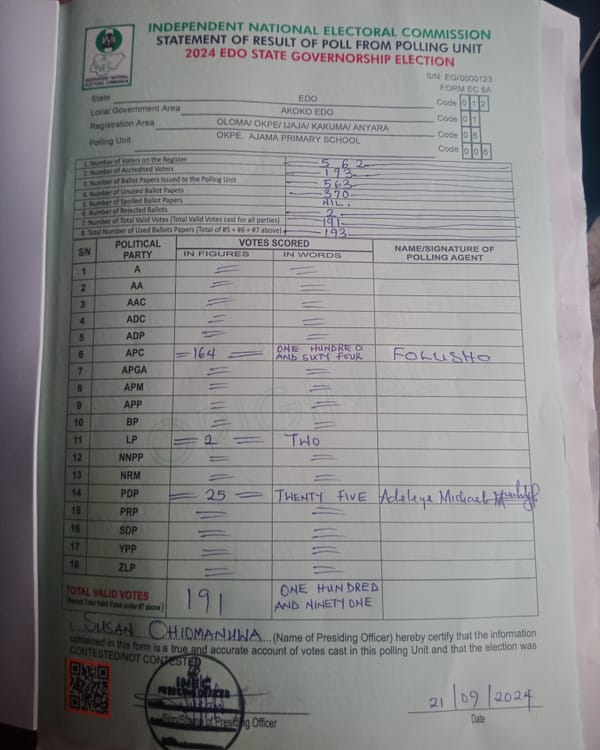 INDEPENDENT NATIONAL ELECTORAL COMMISSION
STATEMENT OF RESULT OF POLL FROM POLLING UNIT
2024 EDO STATE GOVERNORSHIP ELECTION
INEC
INDEPENDENT NATIONAL
ELECTORAL COMMISSION
S/N: EG/0000123
FORM EC 8A
State EDO Code 0 1 2
Local Government Area AKOKO EDO Code 0 1
Registration Area OLOMA/ OKPE/ IJAJA/ KAKUMA/ ANYARA Code 0 6
Polling Unit OKPE, AJAMA PRIMARY SCHOOL Code 0 0 6
1. Number of Voters on the Register 562
2. Number of Accredited Voters 193
3. Number of Ballot Papers Issued to the Polling Unit 563
4. Number of Unused Ballot Papers 370
5. Number of Spoiled Ballot Papers NIL.
6. Number of Rejected Ballots 2
7. Number of Total Valid Votes (Total Valid Votes cast for all parties) 191
8. Total Number of Used Ballots Papers (Total of #5 + #6 + #7 above) 193
S/N POLITICAL PARTY VOTES SCORED NAME/SIGNATURE OF POLLING AGENT
IN FIGURES IN WORDS
1 A
2 AA
3 AAC
4 ADC
5 ADP
6 APC =164= ONE HUNDRED AND SIXTY FOUR FOLUSHO
7 APGA
8 APM
9 APP
10 BP
11 LP =2= TWO
12 NNPP
13 NRM
14 PDP =25= TWENTY FIVE Adeleye Michael
15 PRP
16 SDP
17 YPP
18 ZLP
TOTAL VALID VOTES 191 ONE HUNDRED
(Record Total Valid Votes under #7 above) AND NINETY ONE
I, SUSAN CHIOMANUWA (Name of Presiding Officer) hereby certify that the information
contained in this form is a true and accurate account of votes cast in this polling Unit and that the election was
CONTESTED/NOT CONTESTED
INEC
PRESIDING OFFICER
21/09/2024
Sign/Stamp of Presiding Officer Date